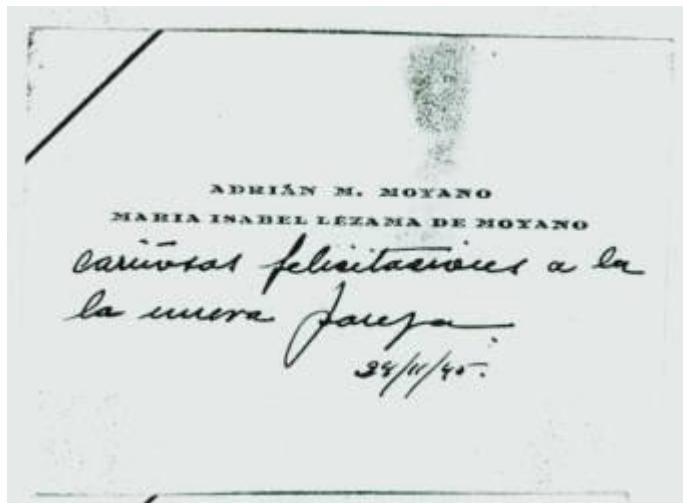 ADRIÁN M. MOYANO
MARIA ISABEL LEZAMA DE MOYANO
cariñosas felicitaciones a la
la nueva pareja